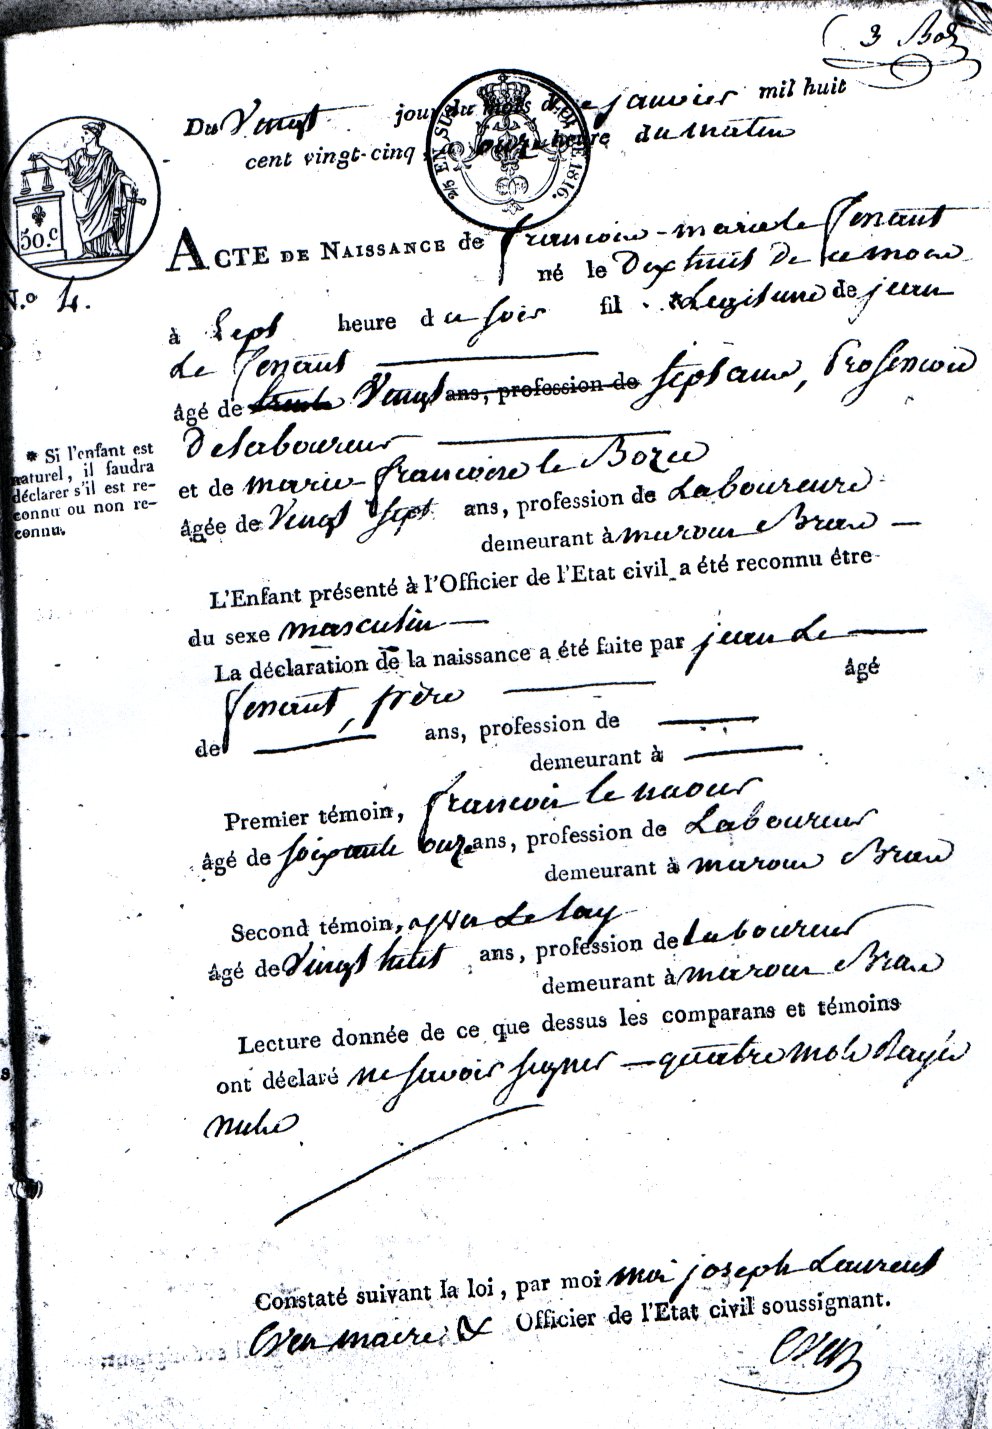 3
Du Vingt jour du mois de janvier mil huit
cent vingt-cinq, à onze heure du matin
2/5 EN SUS 1816.
50.c
ACTE DE NAISSANCE de francoise-marie le Jenaut
né le Dix huit De ce moie
N.o 4.
à Sept heure du soir fil * Legitime de jean
Le Jenaut
âgé de trente Vingt ans, profession de sept ans, Profession
De laboureur
* Si l'enfant est
naturel, il faudra
déclarer s'il est re-
connu ou non re-
connu.
et de marie-francoise le Bozec
âgée de Vingt sept ans, profession de Laboureure
demeurant à muroun Bran
L'Enfant présenté à l'Officier de l'Etat civil a été reconnu être
du sexe masculin
La déclaration de la naissance a été faite par jean Le
Jenaut, frère âgé
de ans, profession de
demeurant à
Premier témoin, francois le naour
âgé de soixante onze ans, profession de Laboureur
demeurant à muroun Bran
Second témoin, yves Le lay
âgé de Vingt huit ans, profession de laboureur
demeurant à muroun Bran
Lecture donnée de ce que dessus les comparans et témoins
ont déclaré ne savoir signer — quatre mots Rayés
nuls
Constaté suivant la loi, par moi moi joseph Laurent
Even maire & Officier de l'Etat civil soussignant.
Even